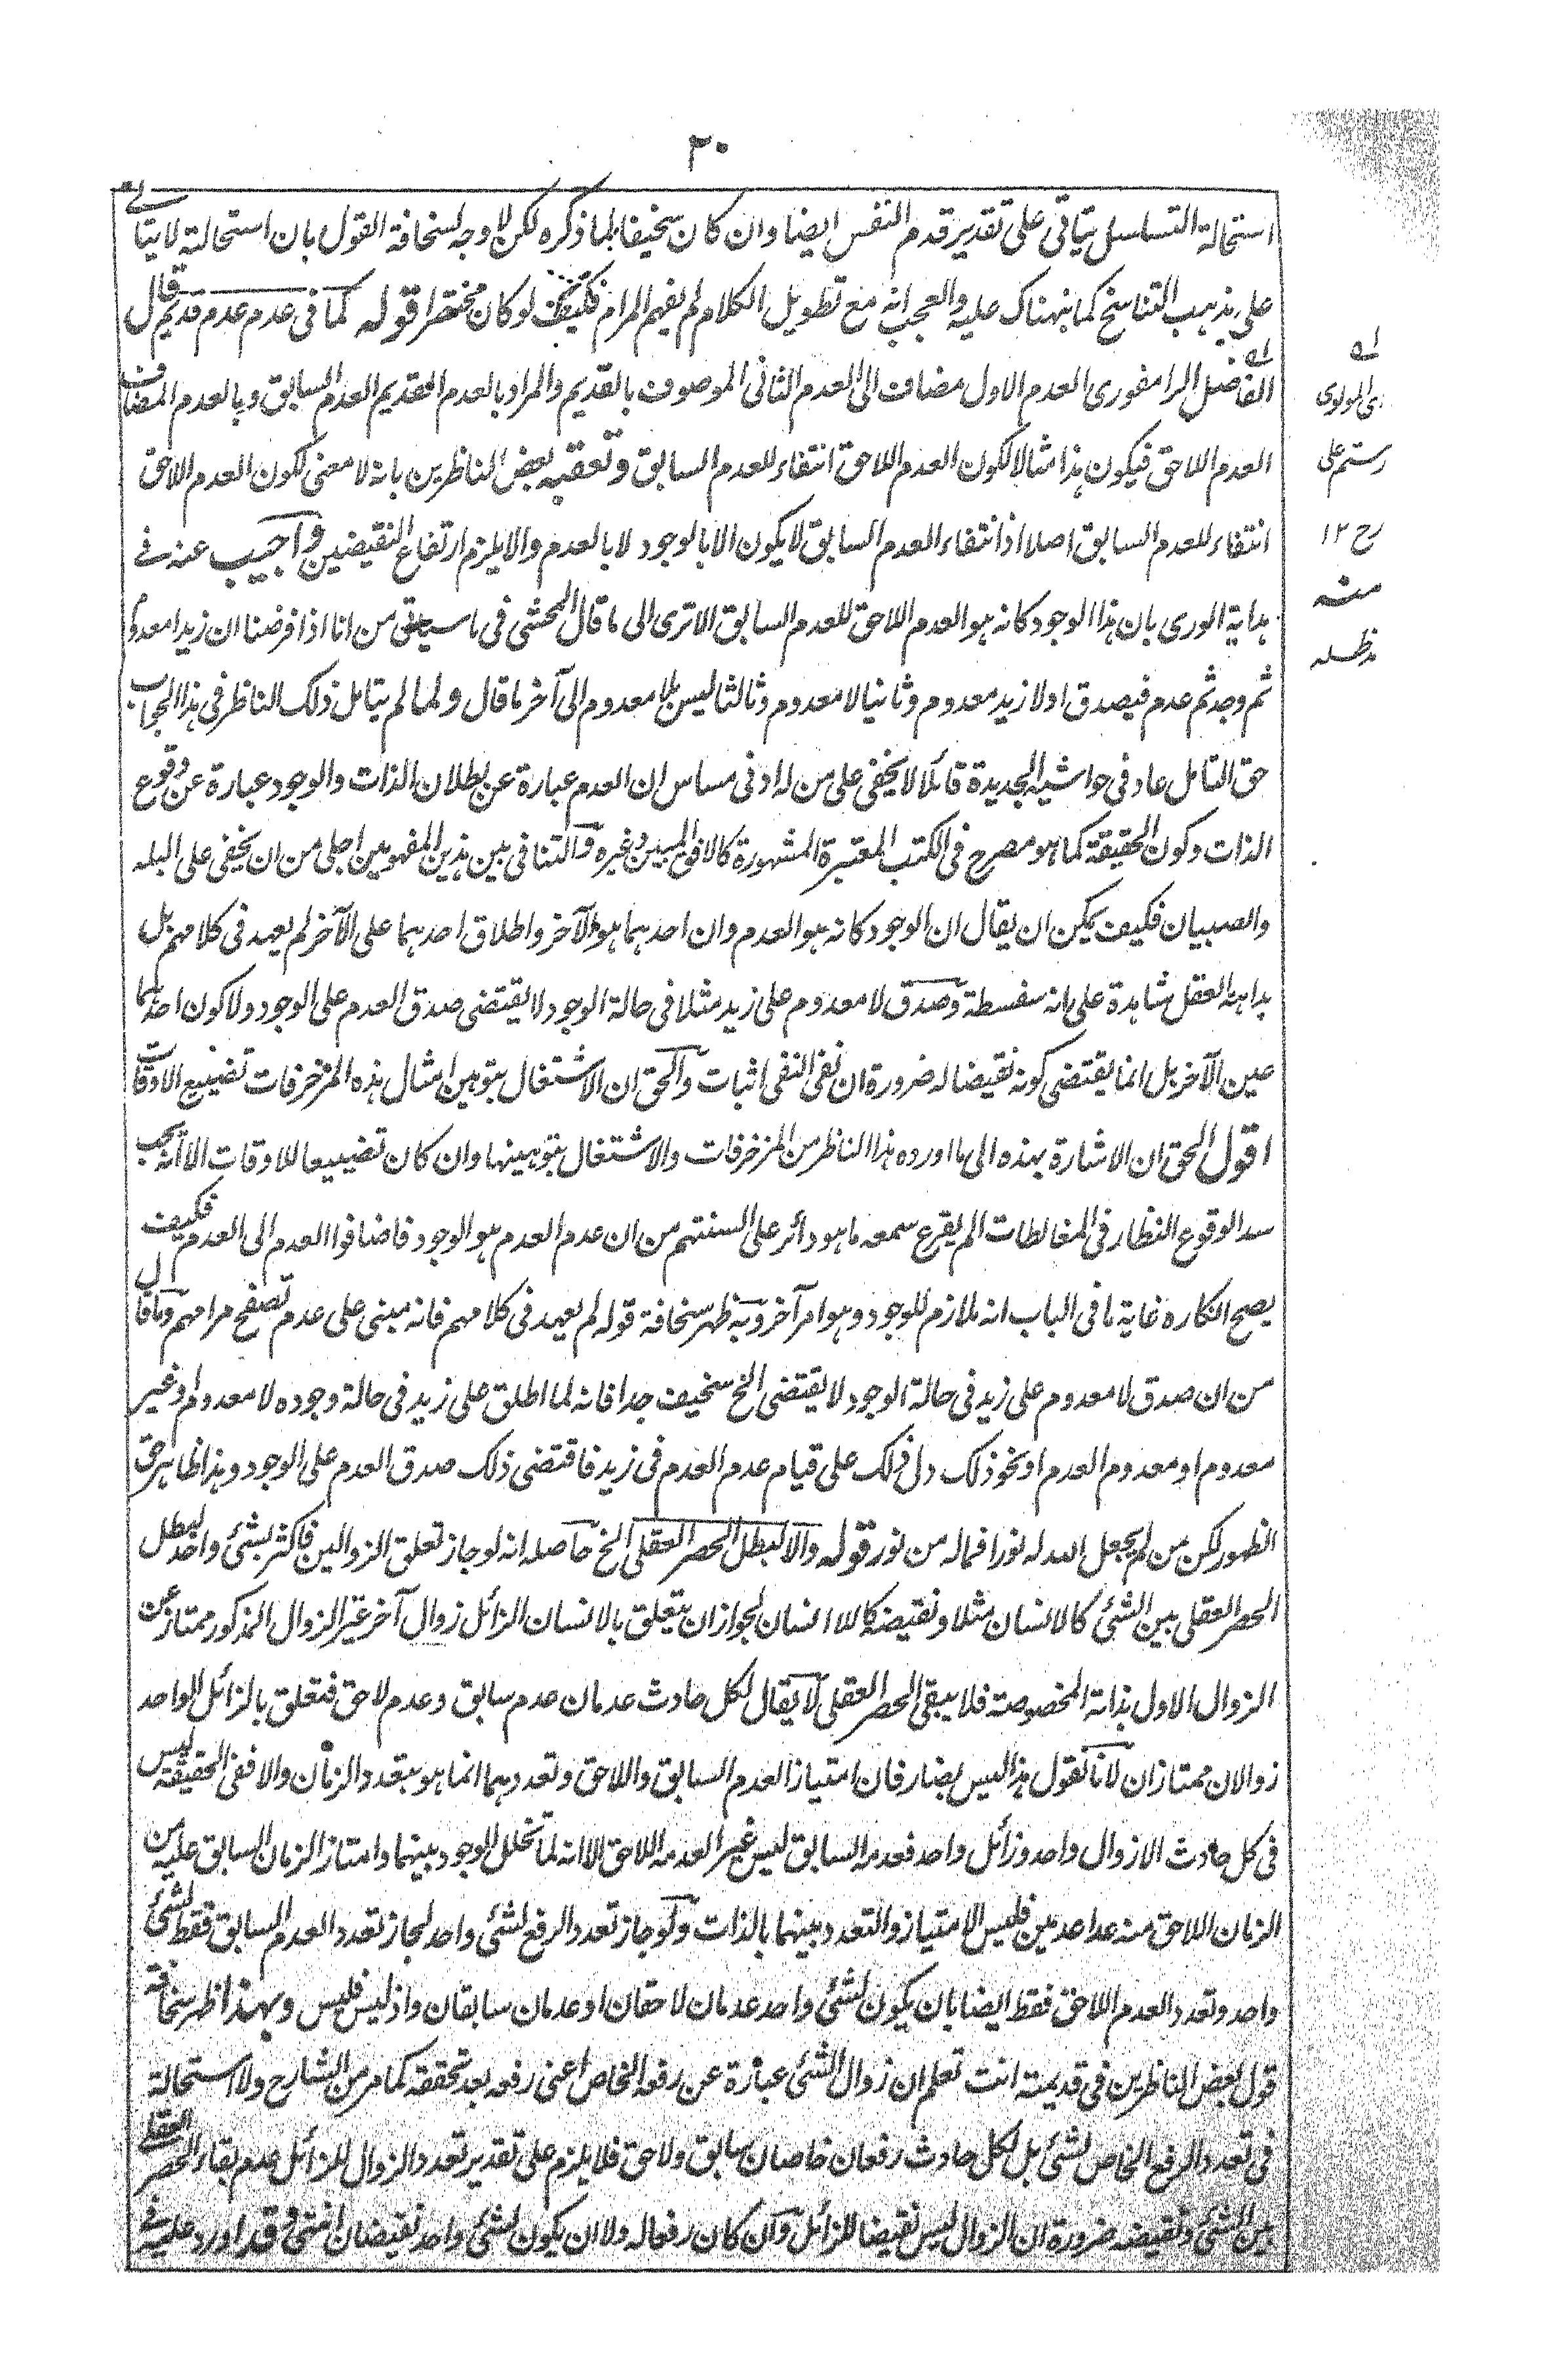 ٣٠
استحالة التسلسل يتأتى على تقدير قدم النفس ايضا وان كان سخيفا لما ذكره لكن لا وجه لسخافة القول بان استحالته لا يتاتے
على مذهب التناسخ كما نبهناك عليه والعجب انه مع تطويل الكلام لم يفهم المرام فكيف لو كان مختصرا قوله كما فى عدم عدم قديم قال
الفاضل الرامفورى العدم الاول مضاف الى العدم الثانى الموصوف بالقديم والمراد بالعدم القديم العدم السابق وبالعدم المضاف
العدم اللاحق فيكون هذا مثالا لكون العدم اللاحق انتفاء للعدم السابق وتعقبه بعض الناظرين بانه لا معنى لكون العدم اللاحق
انتفاء للعدم السابق اصلا اذ انتفاء العدم السابق لا يكون الا بالوجود لا بالعدم والا يلزم ارتفاع النقيضين واجيب عنه فے
هداية الورى بان هذا الوجود كانه هو العدم اللاحق للعدم السابق الا ترى الى ما قال المحشى فى ما سيحقق من انا اذا فرضنا ان زيدا معدوم
ثم وجد ثم عدم فيصدق اولا زيد معدوم وثانيا لا معدوم وثالثا ليس بلا معدوم الى آخر ما قال ولما لم يتامل ذلك الناظر فى هذا الجواب
حق التامل عاد فى حواشيه الجديدة قائلا لا يخفى على من له ادنى مساس ان العدم عبارة عن بطلان الذات والوجود عبارة عن وقوع
الذات وكون الحقيقة كما هو مصرح فى الكتب المعتبرة المشهورة كالافق المبين وغيره والتنافى بين هذين المفهومين اجلى من ان يخفى على البله
والصبيان فكيف يمكن ان يقال ان الوجود كانه هو العدم وان احدهما هو الآخر واطلاق احدهما على الآخر لم يعهد فى كلامهم بل
بداهة العقل شاهدة على انه سفسطة وصدق لا معدوم على زيد مثلا فى حالة الوجود لا يقتضى صدق العدم على الوجود ولا كون احدهما
عين الآخر بل انما يقتضى كونه نقيضا له ضرورة ان نفى النفى اثبات والحق ان الاشتغال بتوهين امثال هذه المزخرفات تضييع الاوقات
اقول الحق ان الاشارة بهذه الى ما اورده هذا الناظر من المزخرفات والاشتغال بتوهينها وان كان تضييعا للاوقات الا انه يجب
سدا لوقوع النظار فى المغالطات الم يقرع سمعه ما هو دائر على السنتهم من ان عدم العدم هو الوجود فاضافوا العدم الى العدم فكيف
يصح انكاره غاية ما فى الباب انه ملازم للوجود وهو امر آخر وبه ظهر سخافة قوله لم يعهد فى كلامهم فانه مبنى على عدم تصفح مرامهم وما قال
من ان صدق لا معدوم على زيد فى حالة الوجود لا يقتضى الخ سخيف جدا فانه لما اطلق على زيد فى حالة وجوده لا معدوم او غير
معدوم او معدوم العدم او نحو ذلك دل ذلك على قيام عدم العدم فى زيد فاقتضى ذلك صدق العدم على الوجود وهذا ظاهر حق
الظهور لكن من لم يجعل الله له نورا فما له من نور قوله والا لبطل الحصر العقلى الخ حاصله انه لو جاز تعلق الزوالين فاكثر بشئ واحد لبطل
الحصر العقلى بين الشئ كالانسان مثلا ونقيضه كاللا انسان لجواز ان يتعلق بالانسان الزائل زوال آخر غير الزوال المذكور ممتاز عن
الزوال الاول بذاته المخصوصة فلا يبقى الحصر العقلى لا يقال لكل حادث عدمان عدم سابق وعدم لاحق فتعلق بالزائل الواحد
زوالان ممتازان لانا نقول هذا ليس بضار فان امتياز العدم السابق واللاحق وتعددهما انما هو بتعدد الزمان والا ففى الحقيقة ليس
فى كل حادث الا زوال واحد وزائل واحد فعدمه السابق ليس غير العدمه اللاحق الا انه لما تخلل الوجود بينهما وامتاز الزمان السابق عليه من
الزمان اللاحق منه عدا عدمين فليس الامتياز والتعدد بينهما بالذات ولو جاز تعدد الرفع لشئ واحد لجاز تعدد العدم السابق فقط لشئ
واحد وتعدد العدم اللاحق فقط ايضا بان يكون لشئ واحد عدمان لاحقان او عدمان سابقان واذ ليس فليس وبهذا ظهر سخافة
قول بعض الناظرين فى قديمته انت تعلم ان زوال الشئ عبارة عن رفعه الخاص اعنى رفعه بعد تحققه كما مر من الشارح ولا استحالة
فى تعدد الرفع الخاص لشئ بل لكل حادث رفعان خاصان سابق ولاحق فلا يلزم على تقدير تعدد الزوال للزائل عدم بقاء الحصر العقلے
بين الشئ ونقيضه ضرورة ان الزوال ليس نقيضا للزائل وان كان رفعا له ولا ان يكون لشئ واحد نقيضان انتهى وقد اورد عليه فے
له
اى المولوى
رستم على
رح ١٢
منه
مدظله